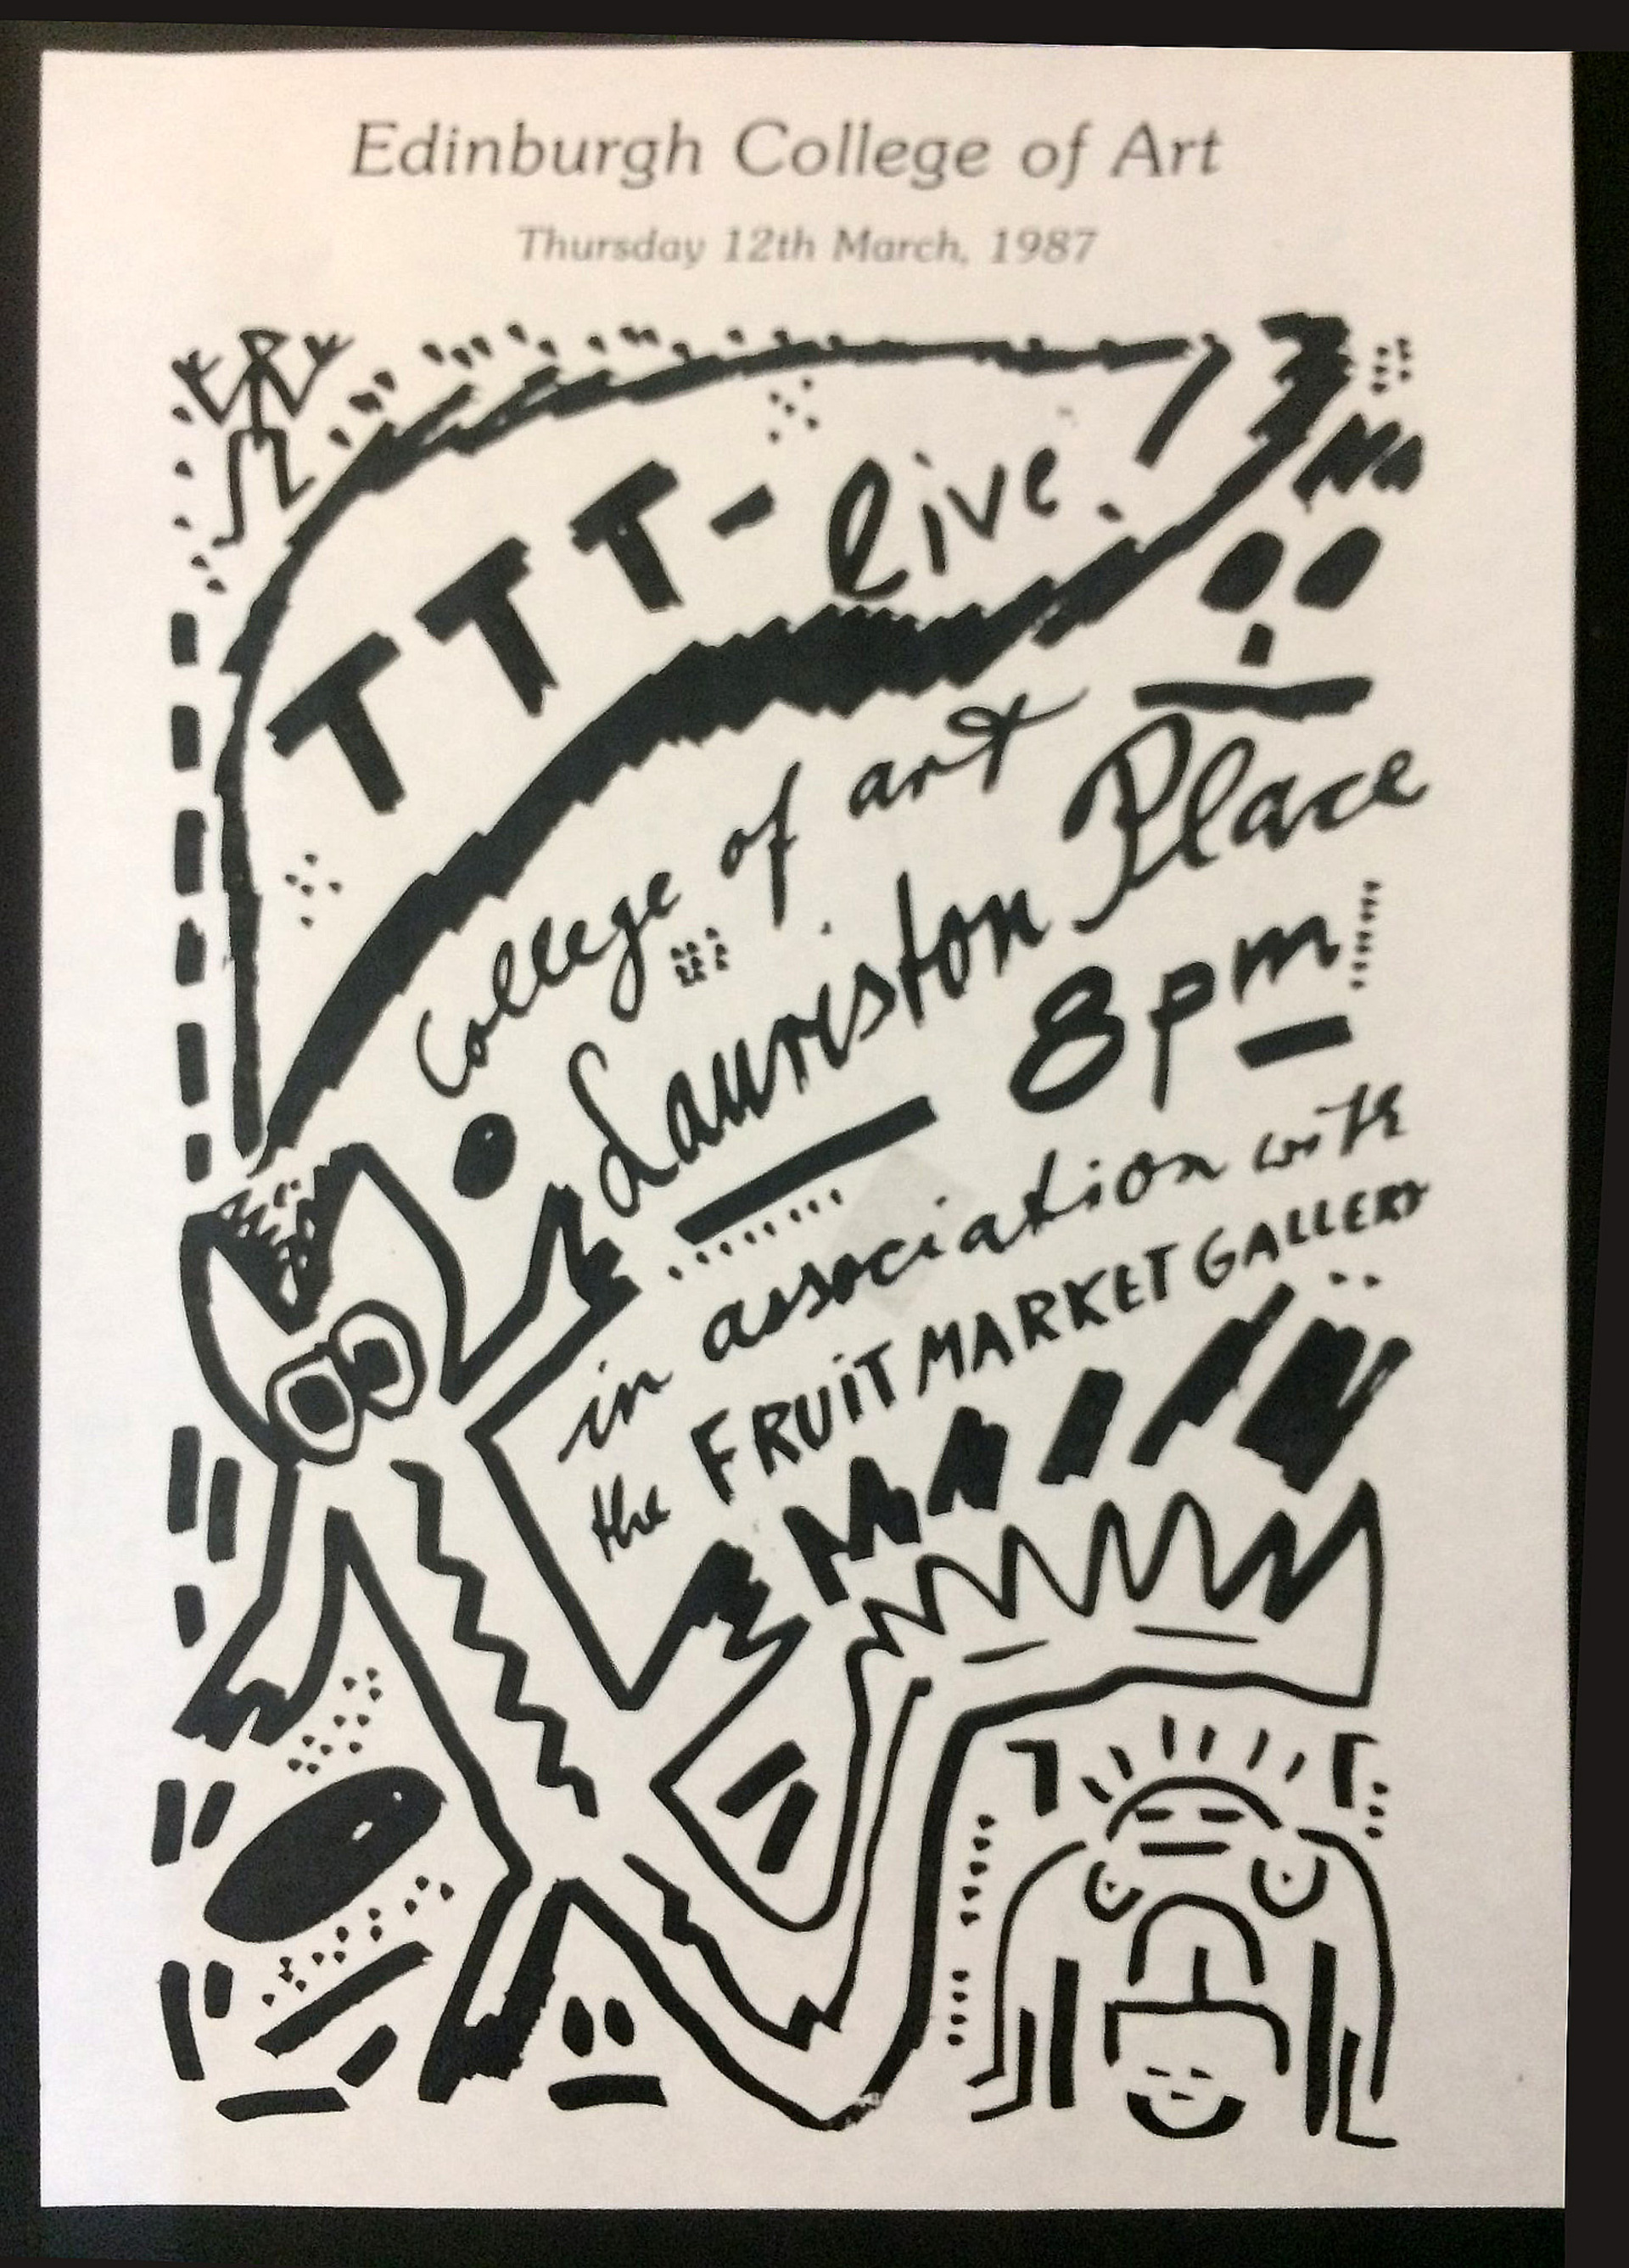 Edinburgh College of Art
Thursday 12th March, 1987
TTT-live
College of art
Lauriston Place
8pm
in association with
the FRUIT MARKET GALLERY